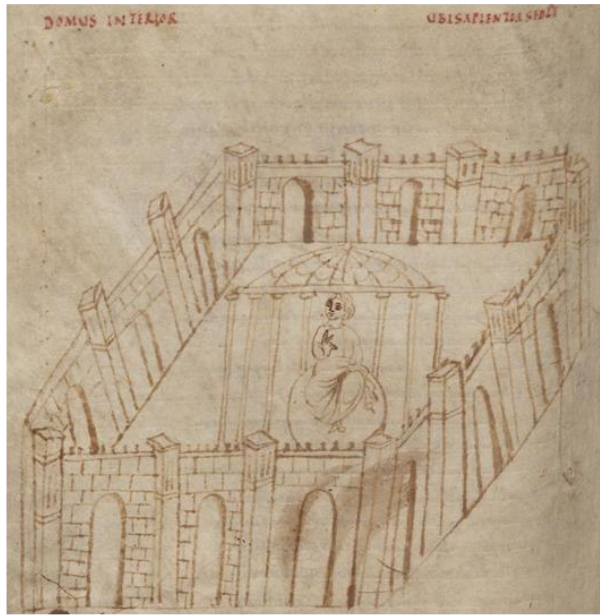 DOMUS INTERIOR UBI SAPIENTIA